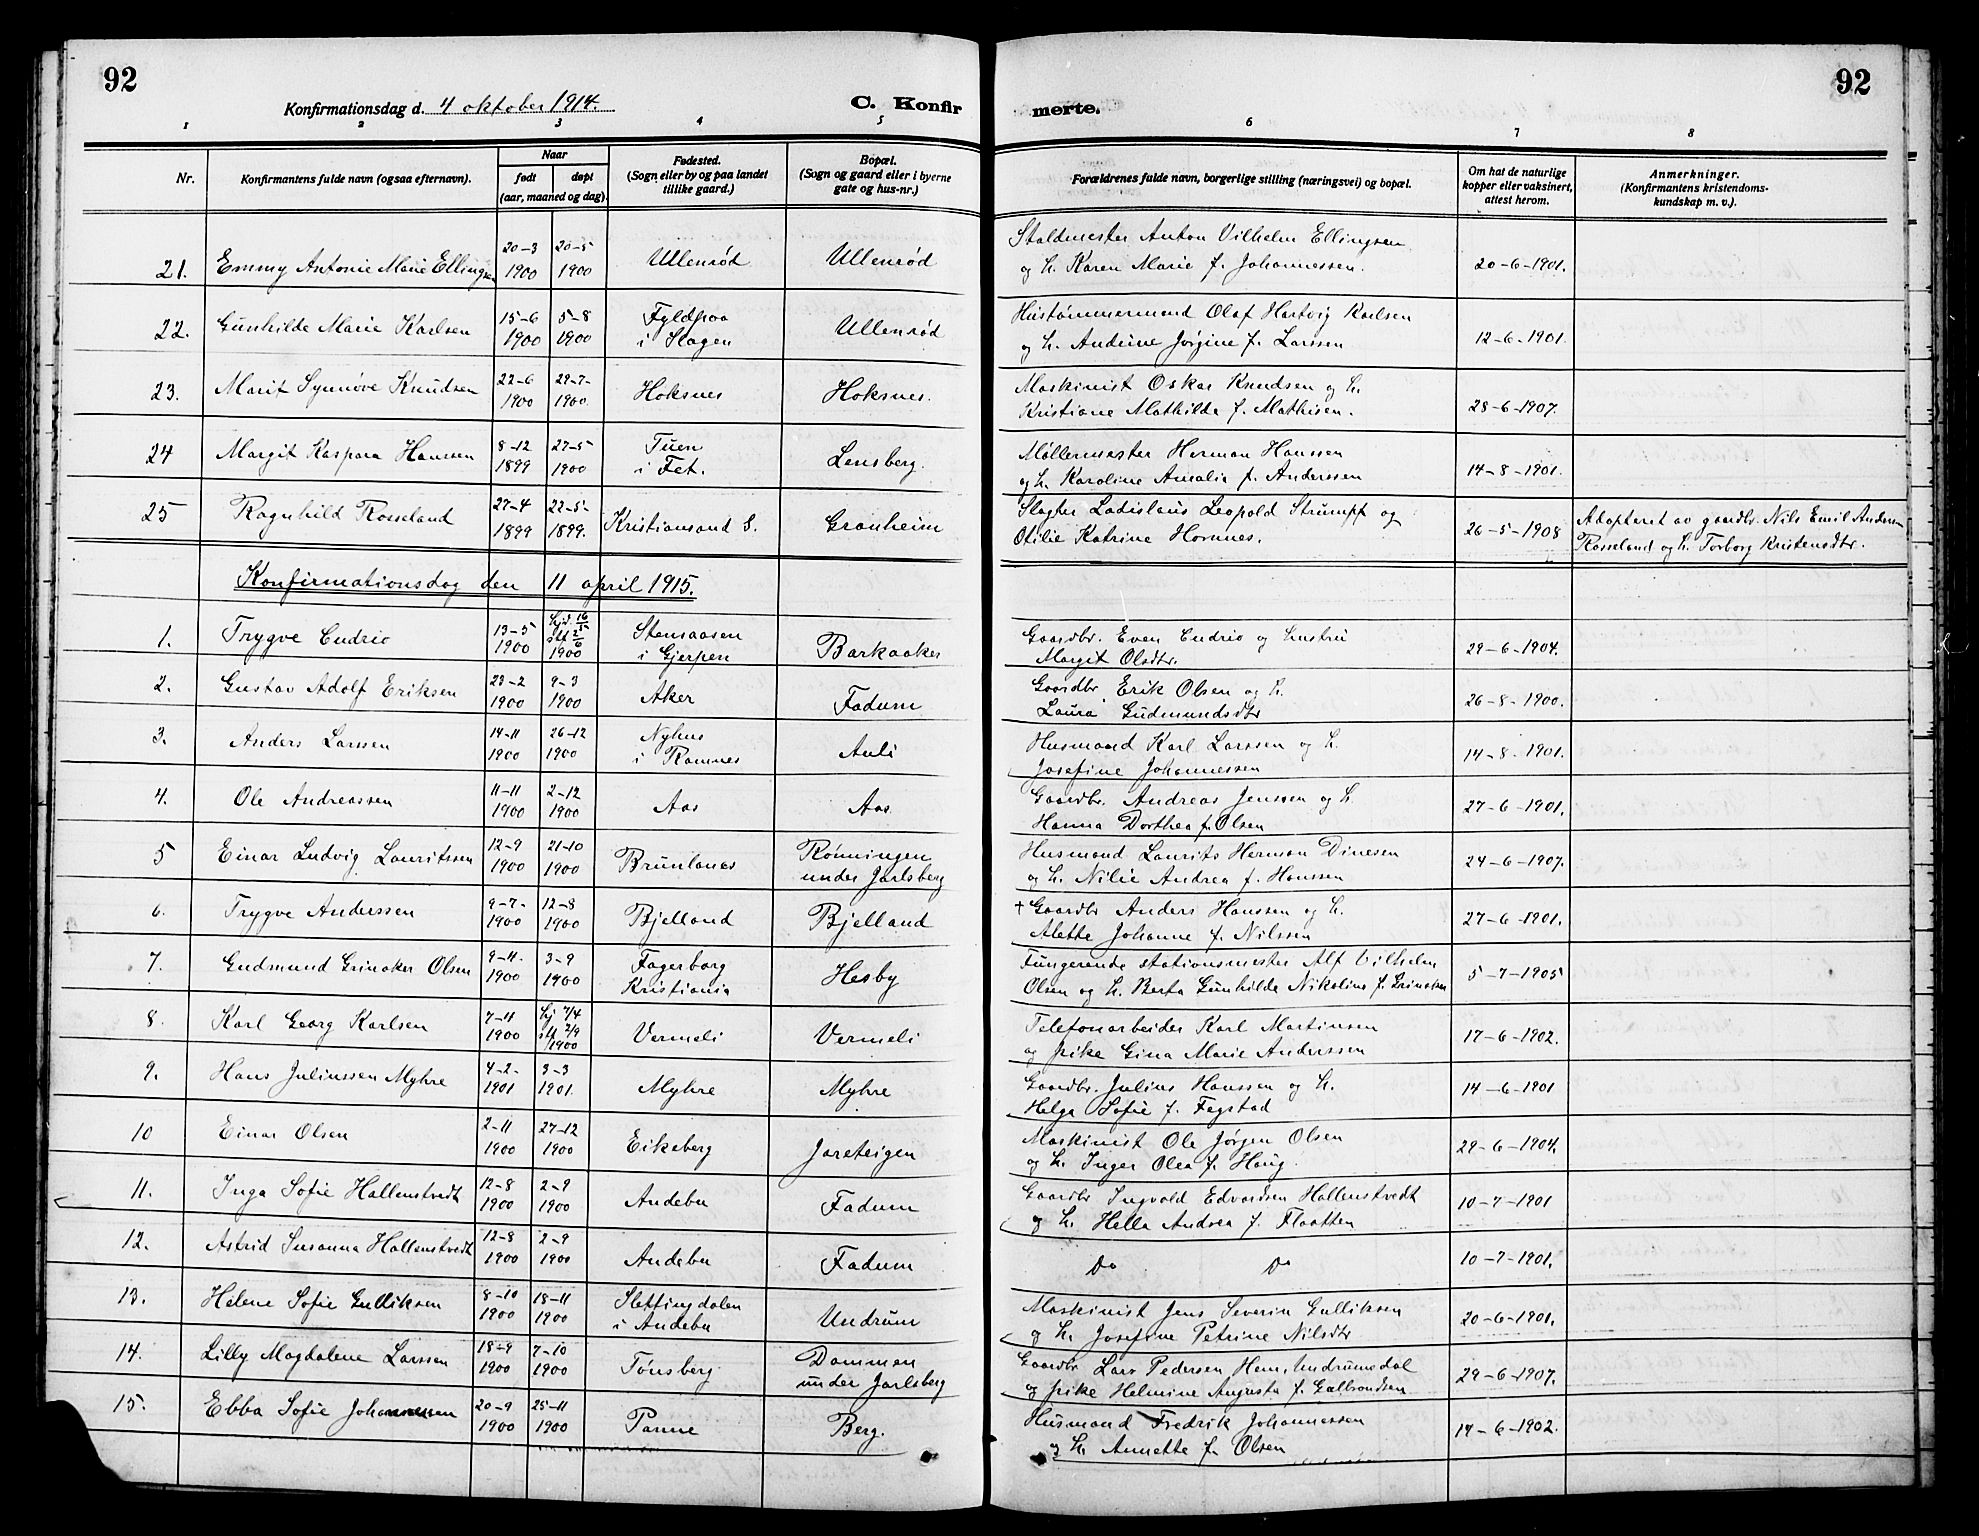 92
92
Konfirmationsdag d. 4 oktober 1914. C. Konfir merte.
1 2 3 4 5 6 7 8
Nr.
Konfirmantens fulde navn (ogsaa efternavn).
Naar
født døpt
(aar, maaned og dag)
Fødested.
(Sogn eller by og paa landet
tillike gaard.)
Bopæl.
(Sogn og gaard eller i byerne
gate og hus-nr.)
Forældrenes fulde navn, borgerlige stilling (næringsvei) og bopæl.
Om hat de naturlige
kopper eller vaksinert,
attest herom.
Anmerkninger.
(Konfirmantens kristendoms-
kundskap m. v.).
21. Emmy Antonie Marie Ellingsen 20-3 1900 20-5 1900 Ullenrød Ullenrød Staldmester Anton Vilhelm Ellingsen
og h. Karen Marie f. Johannessen. 20-6-1901.
22. Gunhilde Marie Karlsen 15-6 1900 5-8 1900 Fyldpaa
i Slagen Ullenrød Hustømmermand Olaf Hartvig Karlsen
og h. Andrine Jørgine f. Larssen 12-6-1901.
23. Marit Synnøve Knudsen 22-6 1900 29-7- 1900. Hoksnes Hoksnes. Maskinist Oskar Knudsen og h.
Kristiane Mathilde f. Mathisen. 28-6-1907.
24 Margit Kaspara Hanssen 8-12 1899 27-5 1900 Tuen
i Fet. Lensberg. Møllermester Herman Hanssen
og h. Karoline Amalia f. Anderssen 14-8-1901.
25 Ragnhild Rosseland 27-4 1899 22-5- 1899. Kristiansand S. Granheim Slagter Ladislaus Leopold Strumpf og
Otilie Katrine Hornnes. 26-5-1908 Adopteret av gaardbr. Nils Emil Andersen
Rosseland og h. Torborg Kristensdtr.
Konfirmationsdag den 11 april 1915.
1. Trygve Endrio 13-5 1900 Hjd. 16/5 stf 2/6 1900 Stensaasen
i Gjerpen Barkaaker Gaardbr. Even Endrio og hustru
Margit Olsdtr. 29-6-1904.
2. Gustav Adolf Eriksen 23-2 1900 9-3 1900 Aker Fadum Gaardbr Erik Olsen og h.
Laura Gudmundsdtr 26-8-1900.
3. Anders Larssen 14-11 1900 26-12 1900 Nyhus
i Ramnes Auli Husmand Karl Larssen og h.
Josefine Johannessen 14-8-1901.
4. Ole Andreassen 11-11 1900 2-12 1900 Aas Aas Gaardbr. Andreas Jenssen og h.
Hanna Dorthea f. Olsen 27-6-1901.
5 Einar Ludvig Lauritssen 12-9 1900 21-10 1900 Brunlanes Rønningen
under Jarlsberg Husmand Laurits Herman Dinesen
og h. Nilie Andrea f. Hanssen 24-6-1907.
6. Trygve Anderssen 9-7- 1900 12-8 1900 Bjelland Bjelland + Gaardbr Anders Hanssen og h.
Alette Johanne f. Nilssen 27-6-1901.
7. Gudmund Grinaker Olsen 9-11. 1900 3-9 1900 Fagerborg
Kristiania Hesby Fungerende stationsmester Alf Vilhelm
Olsen og h. Berta Gunhilde Nikoline f. Grinaker 5-7-1905
8. Karl Georg Karlsen 7-4 1900 Hj 7/4 stf 2/9 1900 Vermeli Vermeli Telefonarbeider Karl Martinsen
og pike Gina Marie Anderssen 17-6-1902.
9. Hans Juliussen Myhre 4-2- 1901 3-3 1901. Myhre Myhre Gaardbr. Julius Hanssen og h.
Helga Sofie f. Fegstad 14-6-1901
10 Einar Olsen 2-11 1900 27-12 1900 Eikeberg Jareteigen Maskinist Ole Jørgen Olsen
og h. Inger Olea f. Haug. 29-6-1904.
11. Inga Sofie Hallenstvedt 12-8 1900 2-9 1900 Andebu Fadum Gaardbr Ingvald Edvardsen Hallenstvedt
og h. Hella Andrea f. Flaatten 10-7-1901
12. Astrid Susanna Hallenstvedt 12-8 1900 2-9 1900 Andebu Fadum Do Do 10-7-1901.
13. Helene Sofie Gulliksen 8-10 1900 18-11 1900 Slettingdalen
i Andebu Undrum Maskinist Jens Severin Gulliksen
og h. Josefine Petrine Nilsdtr 20-6-1901.
14. Lilly Magdalene Larssen 18-9 1900 7-10 1900 Tønsberg Dammen
under Jarlsberg Gaardbr Lars Pedersen Hem, Undrumsdal
og pike Helmine Augusta f. Gulbrandsen 29-6-1907.
15. Ebba Sofie Johannessen 20-9 1900 25-11 1900 Panne Berg. Husmand Fredrik Johannessen
og h. Annette f. Olsen 14-6-1902.